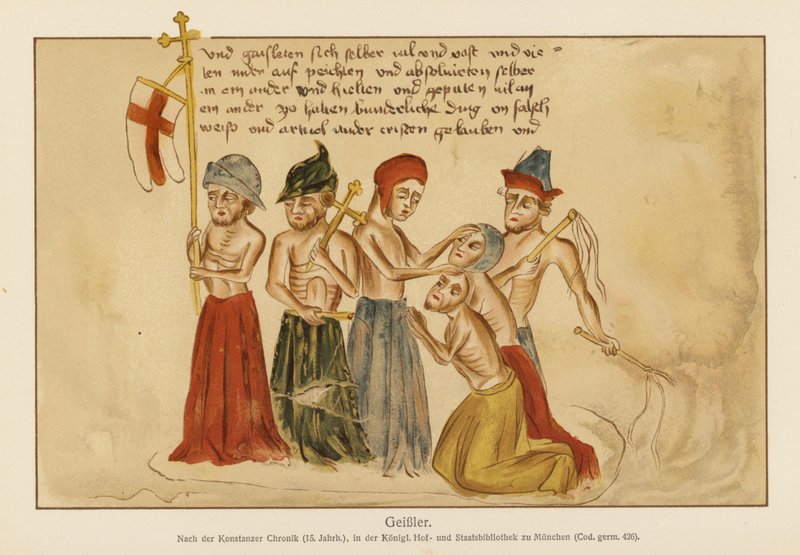 und gaisleten sich selber ual vnd vast und vie =
ten nider auf peichten und absoluirten selber
an ein ander und hielten und geputen uil an
ein ander yo halten bunderliche ding vn falsch
weiss und artucl uider cristen gelauben und
Geißler.
Nach der Konstanzer Chronik (15. Jahrh.), in der Königl. Hof- und Staatsbibliothek zu München (Cod. germ. 426).